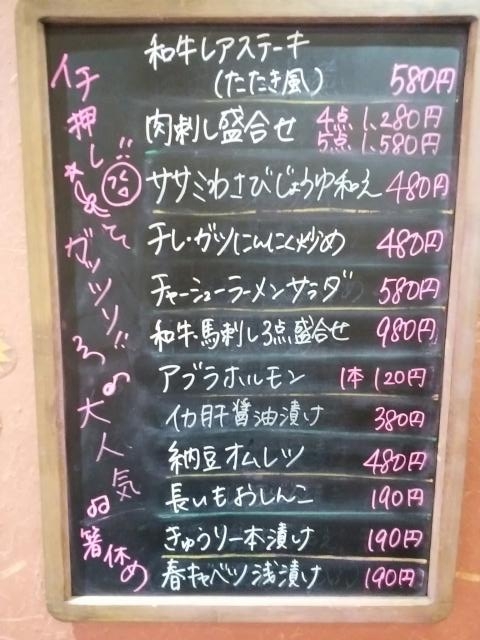 和牛レアステーキ
(たたき風) 580円
肉刺し盛合せ 4点 1,280円
5点 1,580円
ササミわさびじょうゆ和え 480円
チレ・ガツにんにく炒め 480円
チャーシューラーメンサラダ 580円
和牛馬刺し3点盛合せ 980円
アブラホルモン 1本 120円
イカ肝醤油漬け 380円
納豆オムレツ 480円
長いもおしんこ 190円
きゅうり一本漬け 190円
春キャベツ浅漬け 190円
イチ押し!!
ガッツリ!!
大人気
箸休め